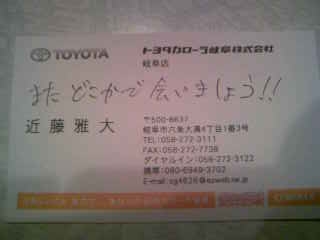 TOYOTA
トヨタカローラ岐阜株式会社
岐阜店
またどこかで会いましょう!!
近藤雅大
〒500-8637
岐阜市六条大溝4丁目1番3号
TEL:058-272-3111
FAX:058-272-7738
ダイヤルイン:058-272-3122
携帯:080-6949-3702